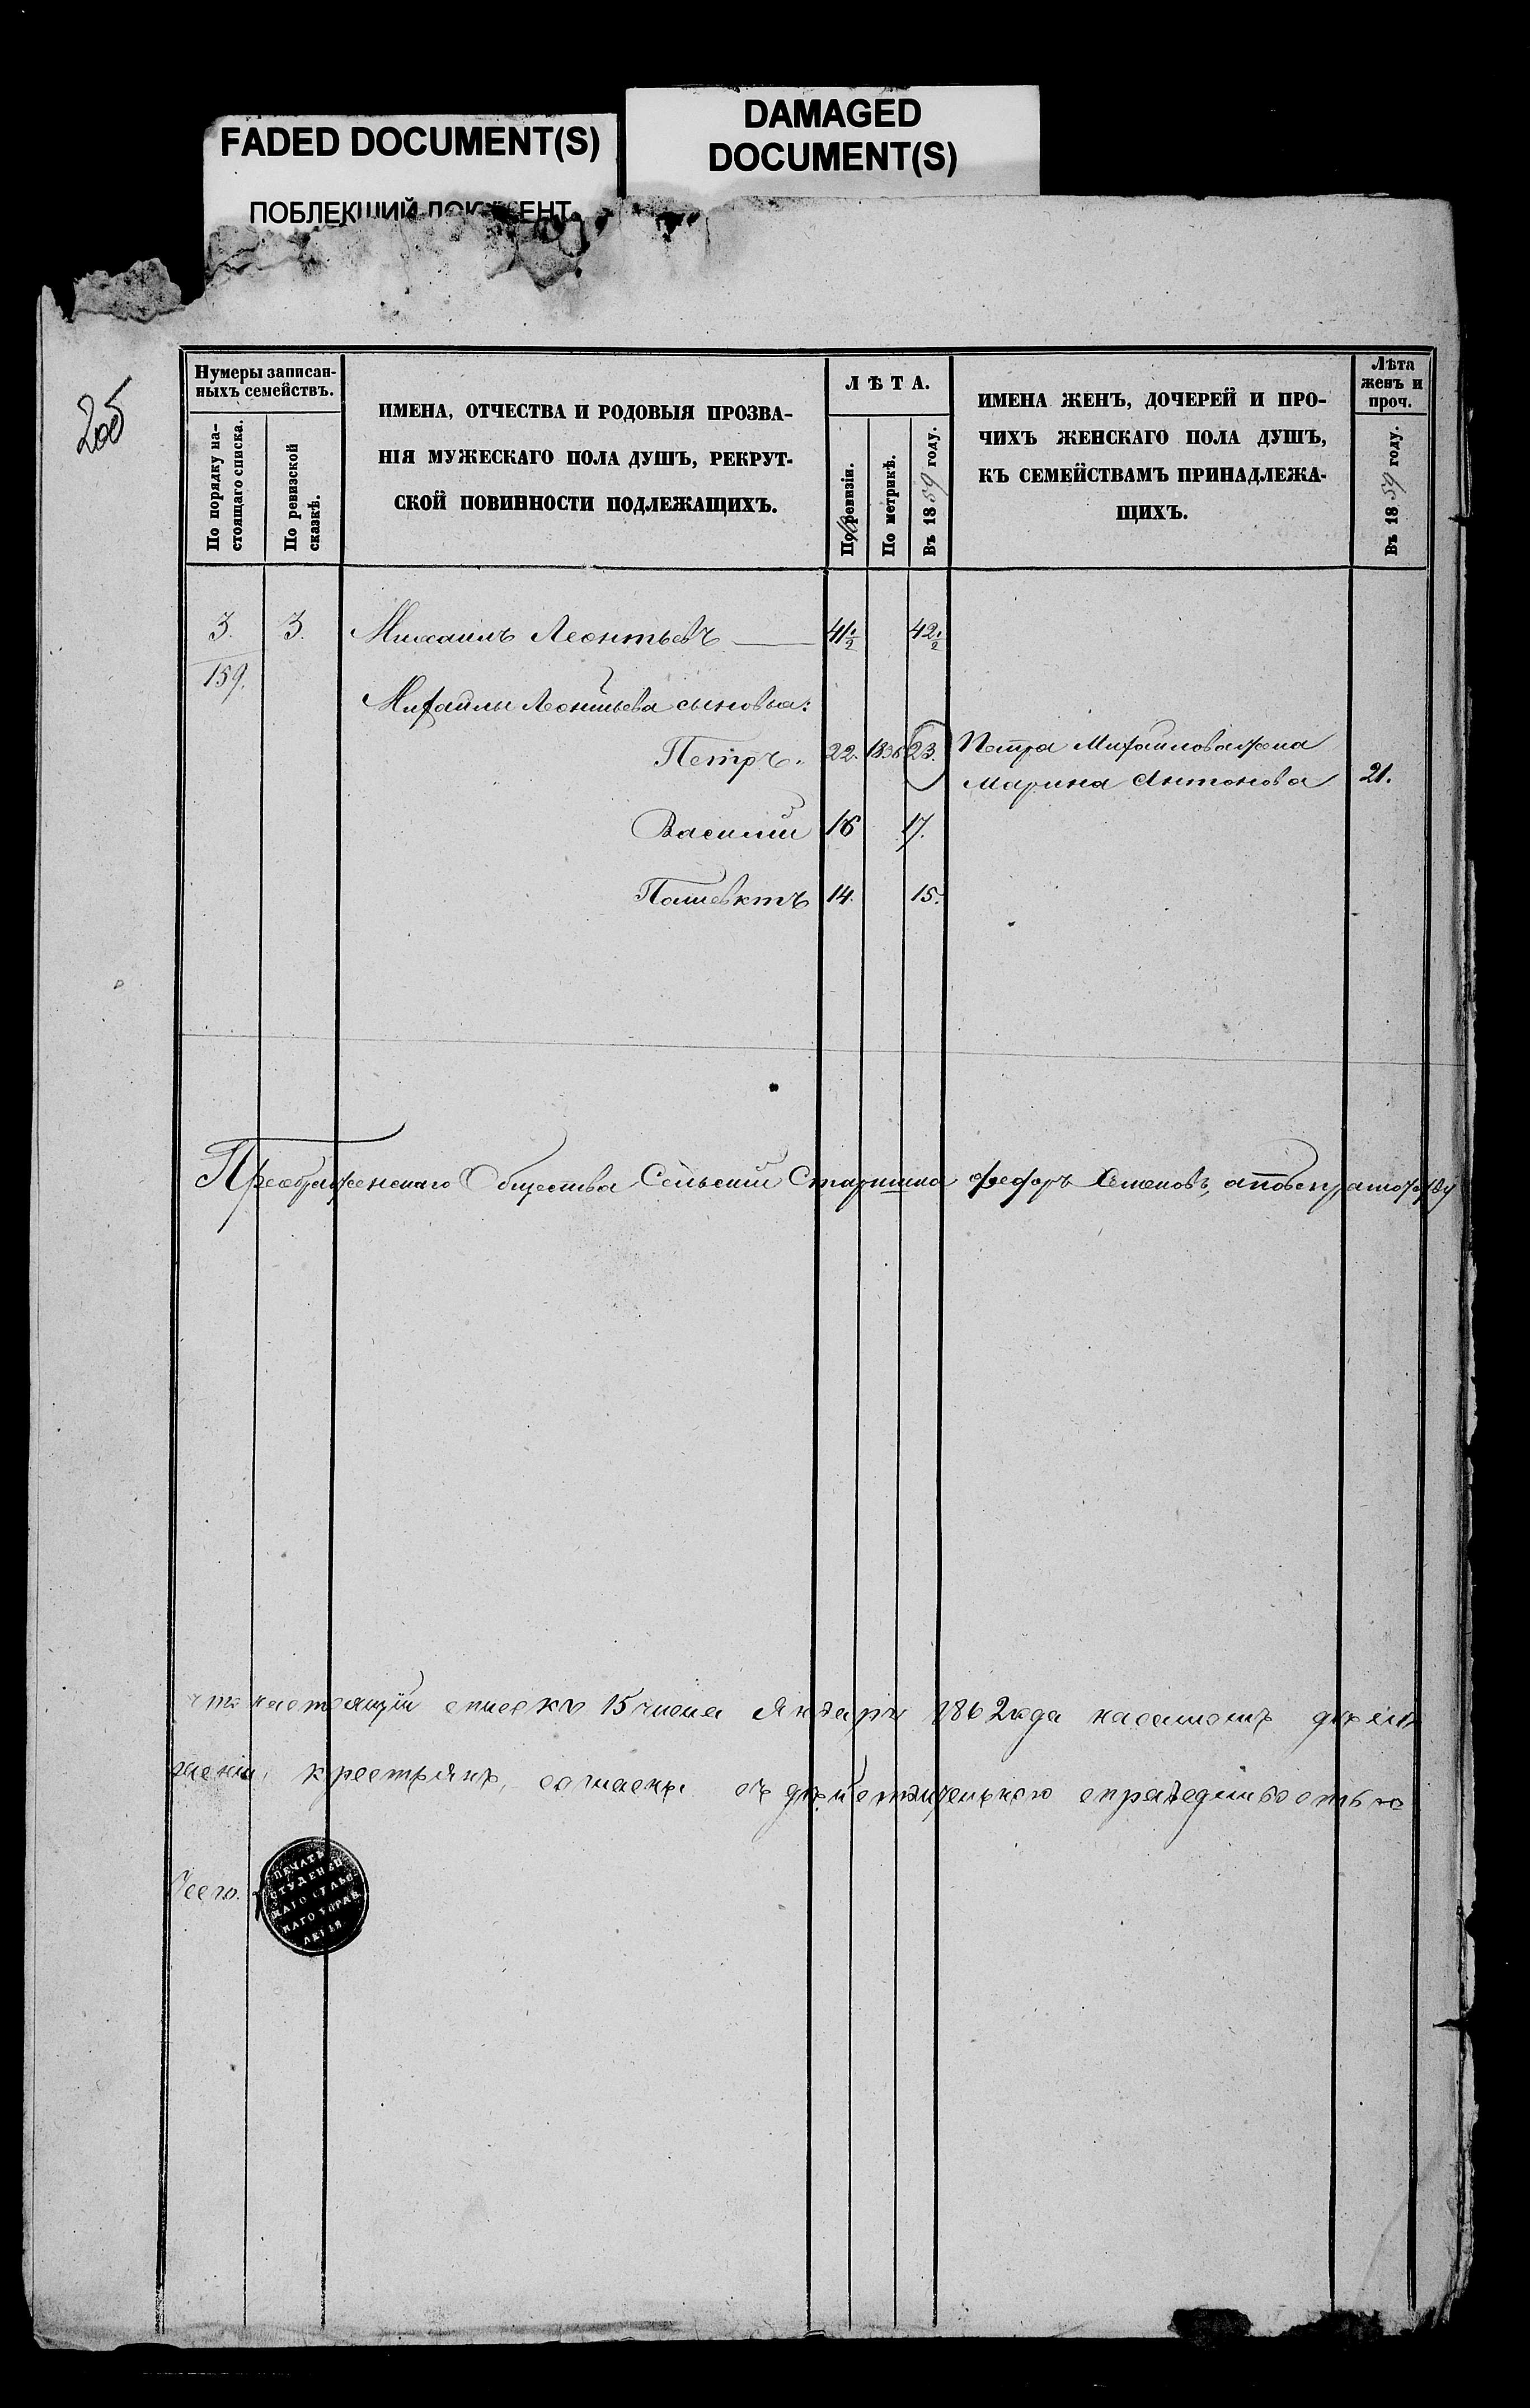 FADED DOCUMENT(S)
DAMAGED
DOCUMENT(S)
ПОБЛЕКШИЙ ДОКУМЕНТ
205
Нумеры записан-
ныхъ семействъ.
По порядку на-
стоящаго списка.
По ревизской
сказкѣ.
ИМЕНА, ОТЧЕСТВА И РОДОВЫЯ ПРОЗВА-
НІЯ МУЖЕСКАГО ПОЛА ДУШЪ, РЕКРУТ-
СКОЙ ПОВИННОСТИ ПОДЛЕЖАЩИХЪ.
ЛѢТА.
По ревизіи.
По метрикѣ.
Въ 1859 году.
ИМЕНА ЖЕНЪ, ДОЧЕРЕЙ И ПРО-
ЧИХЪ ЖЕНСКАГО ПОЛА ДУШЪ,
КЪ СЕМЕЙСТВАМЪ ПРИНАДЛЕЖА-
ЩИХЪ.
Лѣта
женъ и
проч.
Въ 1859 году.
3. 3. Михаилъ Леонтьевъ 41½ 42½
159.
Михаилы Леонтьева сыновья:
Петръ. 22. 1836 23. Петра Михайлова жена
Марина Антонова 21.
Василий 16 17.
Полиевктъ 14. 15.
Преображенскаго Общества Сельский Старшина Федоръ Семеновъ,
настоящий списокъ 15 числа Января 1862 года
крестьянъ, справедливостью
ПЕЧАТЬ
СТУДЕН
КАГО СЕЛЬС
КАГО УПРАВ
ЛЕНІЯ